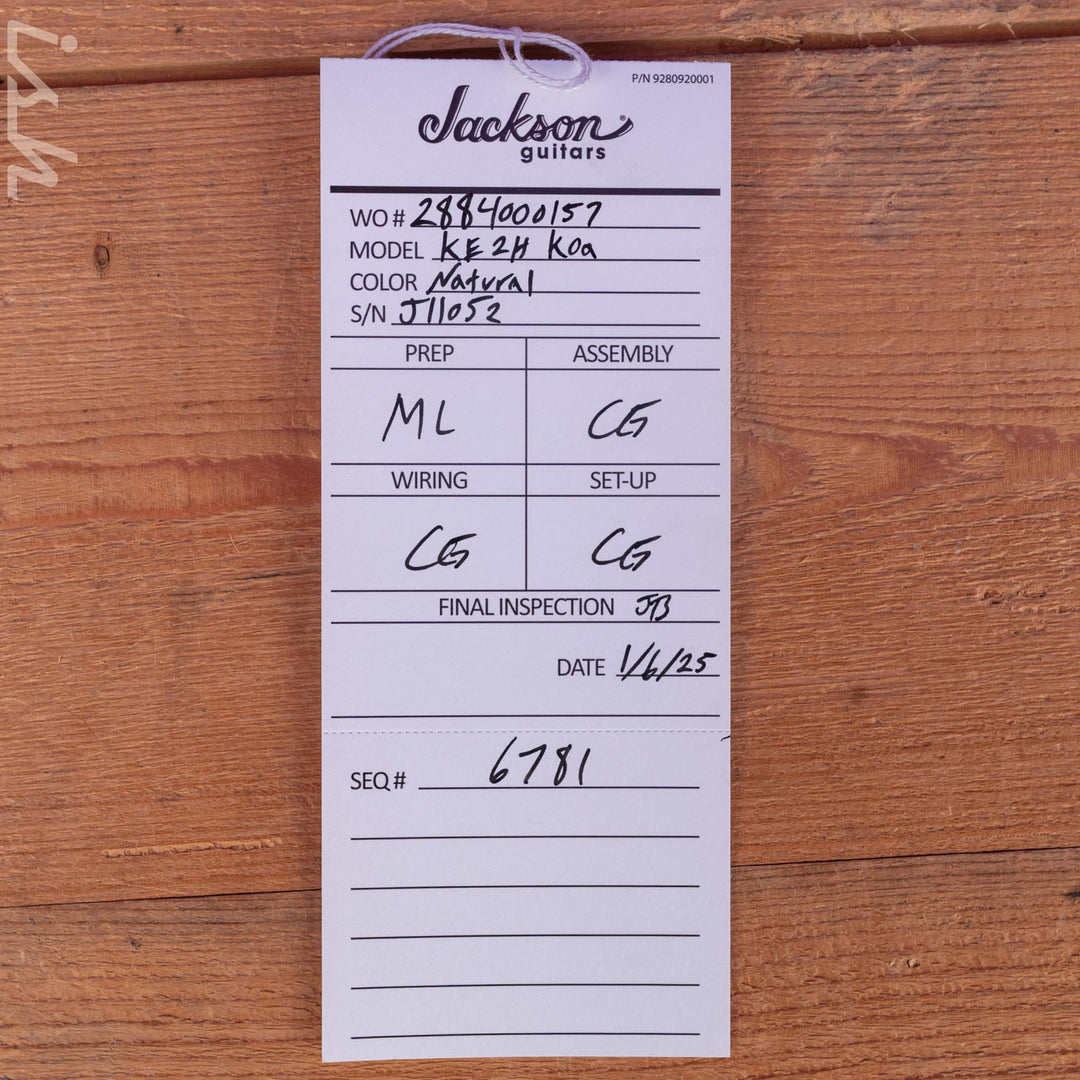 P/N 9280920001
Jackson®
guitars
WO # 2884000157
MODEL KE2H Koa
COLOR Natural
S/N J11052
PREP ASSEMBLY
ML CG
WIRING SET-UP
CG CG
FINAL INSPECTION JB
DATE 1/6/25
SEQ # 6781
ish